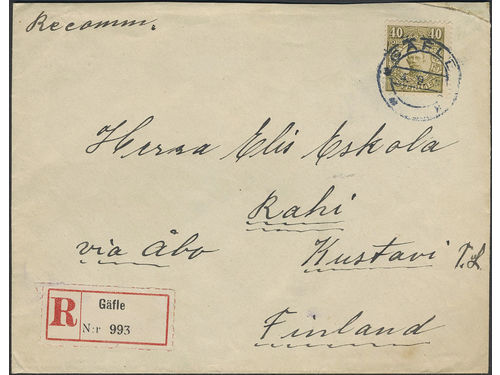 Recomm.
40 40
GÄFLE
Herra Elis Eskola
Rahi
via Åbo Kustavi T.L.
Finland
R Gäfle
N:r 993